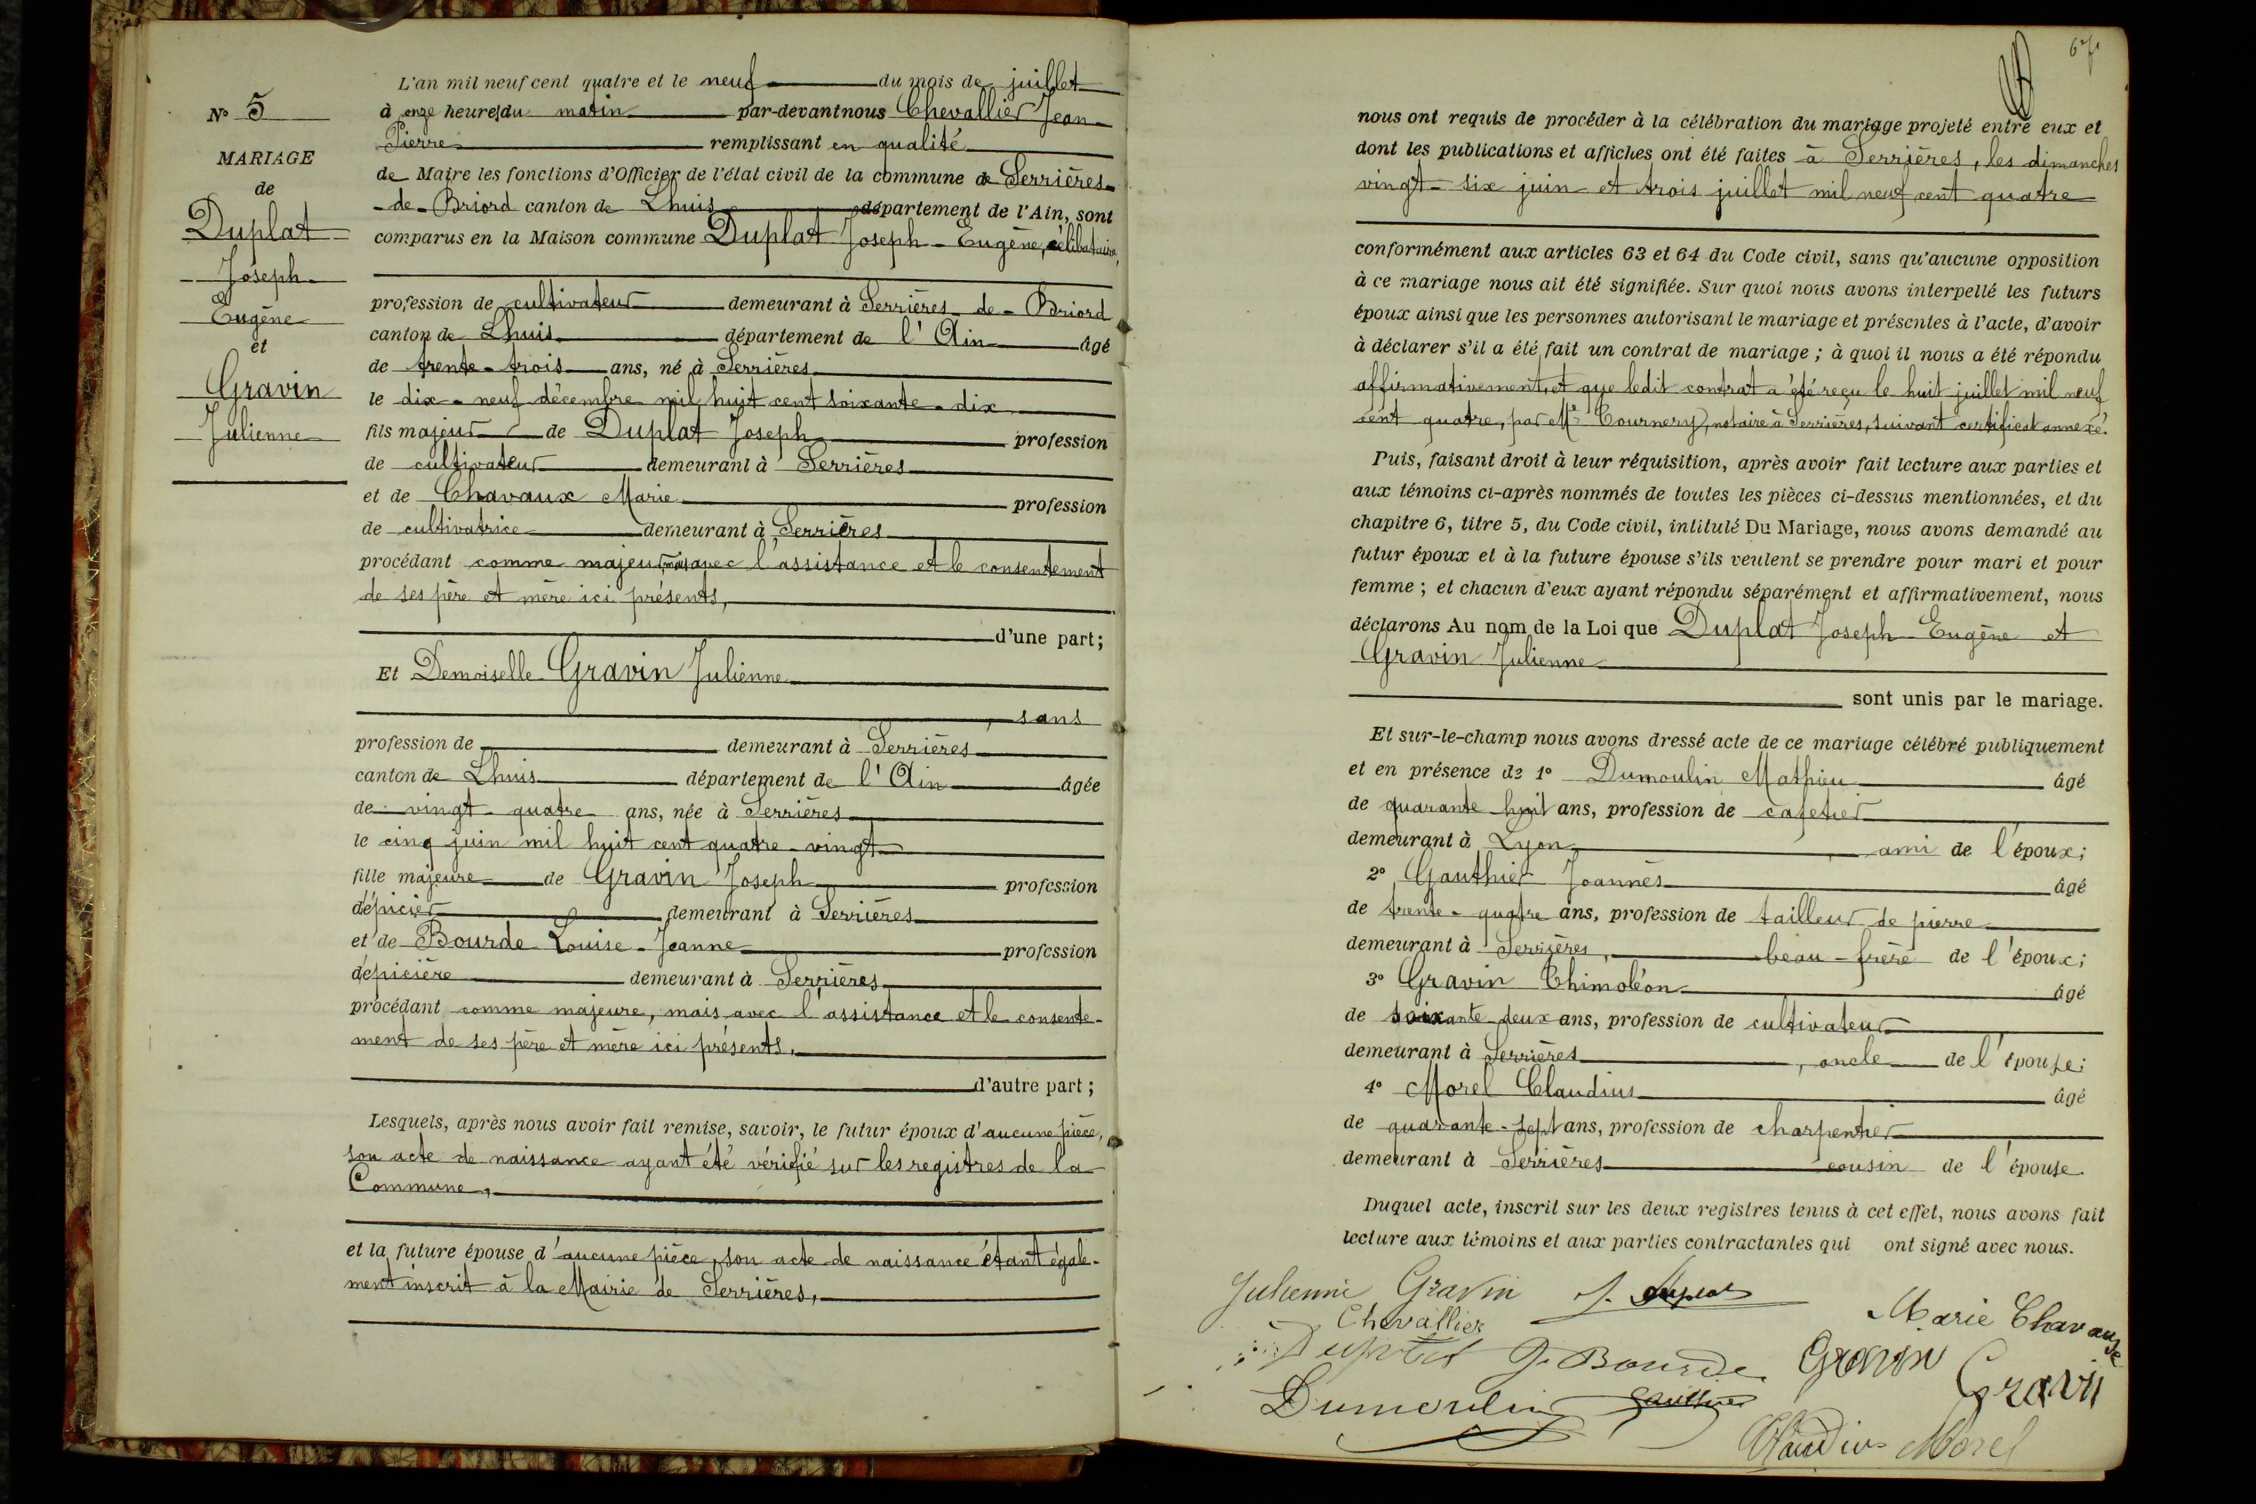 N° 5
MARIAGE
de
Duplat
Joseph
Eugène
et
Gravin
Julienne
L'an mil neuf cent quatre et le neuf du mois de juillet
à onze heures du matin par-devant nous Chevallier Jean-
Pierre remplissant en qualité
de Maire les fonctions d'Officier de l'état civil de la commune de Serrières-
-de-Briord canton de Lhuis département de l'Ain, sont
comparus en la Maison commune Duplat Joseph-Eugène, célibataire,
profession de cultivateur demeurant à Serrières-de-Briord
canton de Lhuis département de l'Ain âgé
de trente-trois ans, né à Serrières
le dix-neuf décembre mil huit cent soixante-dix
fils majeur de Duplat Joseph profession
de cultivateur demeurant à Serrières
et de Chavaux Marie profession
de cultivatrice demeurant à Serrières
procédant comme majeur mais avec l'assistance et le consentement
de ses père et mère ici présents,
d'une part;
Et Demoiselle Gravin Julienne
, sans
profession de demeurant à Serrières
canton de Lhuis département de l'Ain âgée
de vingt-quatre ans, née à Serrières
le cinq juin mil huit cent quatre-vingt
fille majeure de Gravin Joseph profession
d'épicier demeurant à Serrières
et de Bourde Louise-Jeanne profession
d'épicière demeurant à Serrières
procédant comme majeure, mais avec l'assistance et le consente-
ment de ses père et mère ici présents,
d'autre part;
Lesquels, après nous avoir fait remise, savoir, le futur époux d'aucune pièce,
son acte de naissance ayant été vérifié sur les registres de la
Commune,
et la future épouse d'aucune pièce, son acte de naissance étant égale-
ment inscrit à la Mairie de Serrières,
67
nous ont requis de procéder à la célébration du mariage projeté entre eux et
dont les publications et affiches ont été faites à Serrières, les dimanches
vingt-six juin et trois juillet mil neuf cent quatre
conformément aux articles 63 et 64 du Code civil, sans qu'aucune opposition
à ce mariage nous ait été signifiée. Sur quoi nous avons interpellé les futurs
époux ainsi que les personnes autorisant le mariage et présentes à l'acte, d'avoir
à déclarer s'il a été fait un contrat de mariage; à quoi il nous a été répondu
affirmativement, et que ledit contrat a été reçu le huit juillet mil neuf
cent quatre, par Me Tournery, notaire à Serrières, suivant certificat annexé.
Puis, faisant droit à leur réquisition, après avoir fait lecture aux parties et
aux témoins ci-après nommés de toutes les pièces ci-dessus mentionnées, et du
chapitre 6, titre 5, du Code civil, intitulé Du Mariage, nous avons demandé au
futur époux et à la future épouse s'ils veulent se prendre pour mari et pour
femme; et chacun d'eux ayant répondu séparément et affirmativement, nous
déclarons Au nom de la Loi que Duplat Joseph Eugène et
Gravin Julienne
sont unis par le mariage.
Et sur-le-champ nous avons dressé acte de ce mariage célébré publiquement
et en présence de 1° Dumoulin Mathieu âgé
de quarante huit ans, profession de cafetier
demeurant à Lyon, ami de l'époux;
2° Gauthier Joannès âgé
de trente-quatre ans, profession de tailleur de pierre
demeurant à Serrières, beau-frère de l'époux;
3° Gravin Thimoléon âgé
de soixante deux ans, profession de cultivateur
demeurant à Serrières, oncle de l'épouse;
4° Morel Claudius âgé
de quarante-sept ans, profession de charpentier
demeurant à Serrières cousin de l'épouse
Duquel acte, inscrit sur les deux registres tenus à cet effet, nous avons fait
lecture aux témoins et aux parties contractantes qui ont signé avec nous.
Julienne Gravin J. Duplat
Marie Chavaux
Chevallier
Duplat J. Bourde Gravin Gravin
Dumoulin Gauthier
Claudius Morel